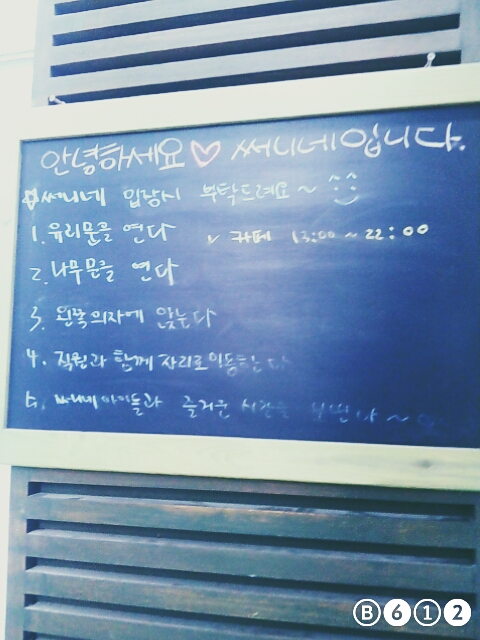 안녕하세요♡ 써니네입니다.
☆써니네 입장시 부탁드려요~ ^^
1. 유리문을 연다
v 카페 13:00 ~ 22:00
2. 나무문을 연다
3. 왼쪽의자에 앉는다
4. 직원과 함께 자리로 이동한다
5. 써니네 아이들과 즐거운 시간을 보낸다~♡
B612